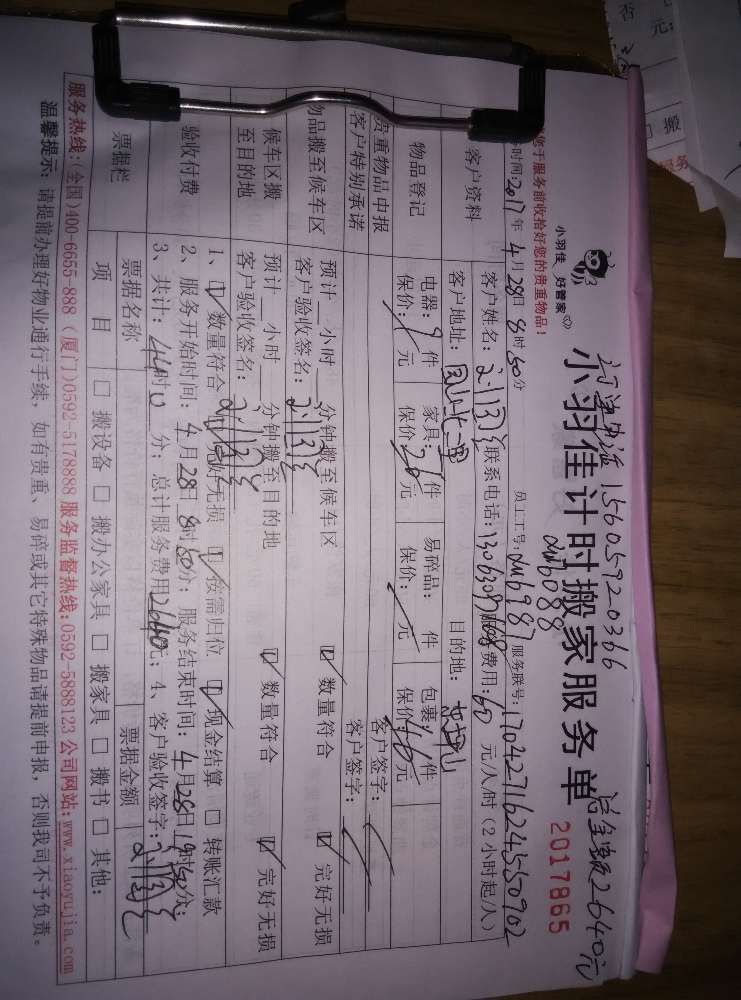 订单电话 15605920366 总金额 2640元
dm6088
小羽佳 好管家
小羽佳计时搬家服务单 2017865
您于服务前收拾好您的贵重物品!
时间: 2017 年 4 月 28 日 8 时 50 分 员工工号: dm6987 服务联号: 1704271624550902
客户资料
客户姓名: 联系电话: 费用: 60 元/人/时 (2小时起/人)
客户地址: 目的地:
物品登记
电器: 9 件 家具: 件 易碎品: 件 包裹: 件
保价: 元 保价: 元 保价: 元 保价: 元
贵重物品申报 客户签字:
客户特别承诺 客户签字:
物品搬至候车区
预计 小时 分钟搬至候车区 ☑ 数量符合 ☑ 完好无损
客户验收签名:
候车区搬至目的地
预计 小时 分钟搬至目的地 ☑ 数量符合 ☑ 完好无损
客户验收签名:
验收付费
1、☑ 数量符合 ☑ 完好无损 ☑ 按需归位 ☑ 现金结算 □ 转账汇款
2、服务开始时间: 4 月 28 日 8 时 50 分; 服务结束时间: 4 月 28 日 19 时 50 分;
3、共计: 44 时 0 分; 总计服务费用 2640 元; 4、客户验收签字:
票据栏
票据名称 票据金额
项 目 □ 搬设备 □ 搬办公家具 □ 搬家具 □ 搬书 □ 其他:
服务热线:(全国)400-6655-888 (厦门)0592-5178888 服务监督热线:0592-5888123 公司网站:www.xiaoyujia.com
温馨提示: 请提前办理好物业通行手续, 如有贵重、易碎或其它特殊物品请提前申报, 否则我司不予负责。
否
元;
□ 搬
服务